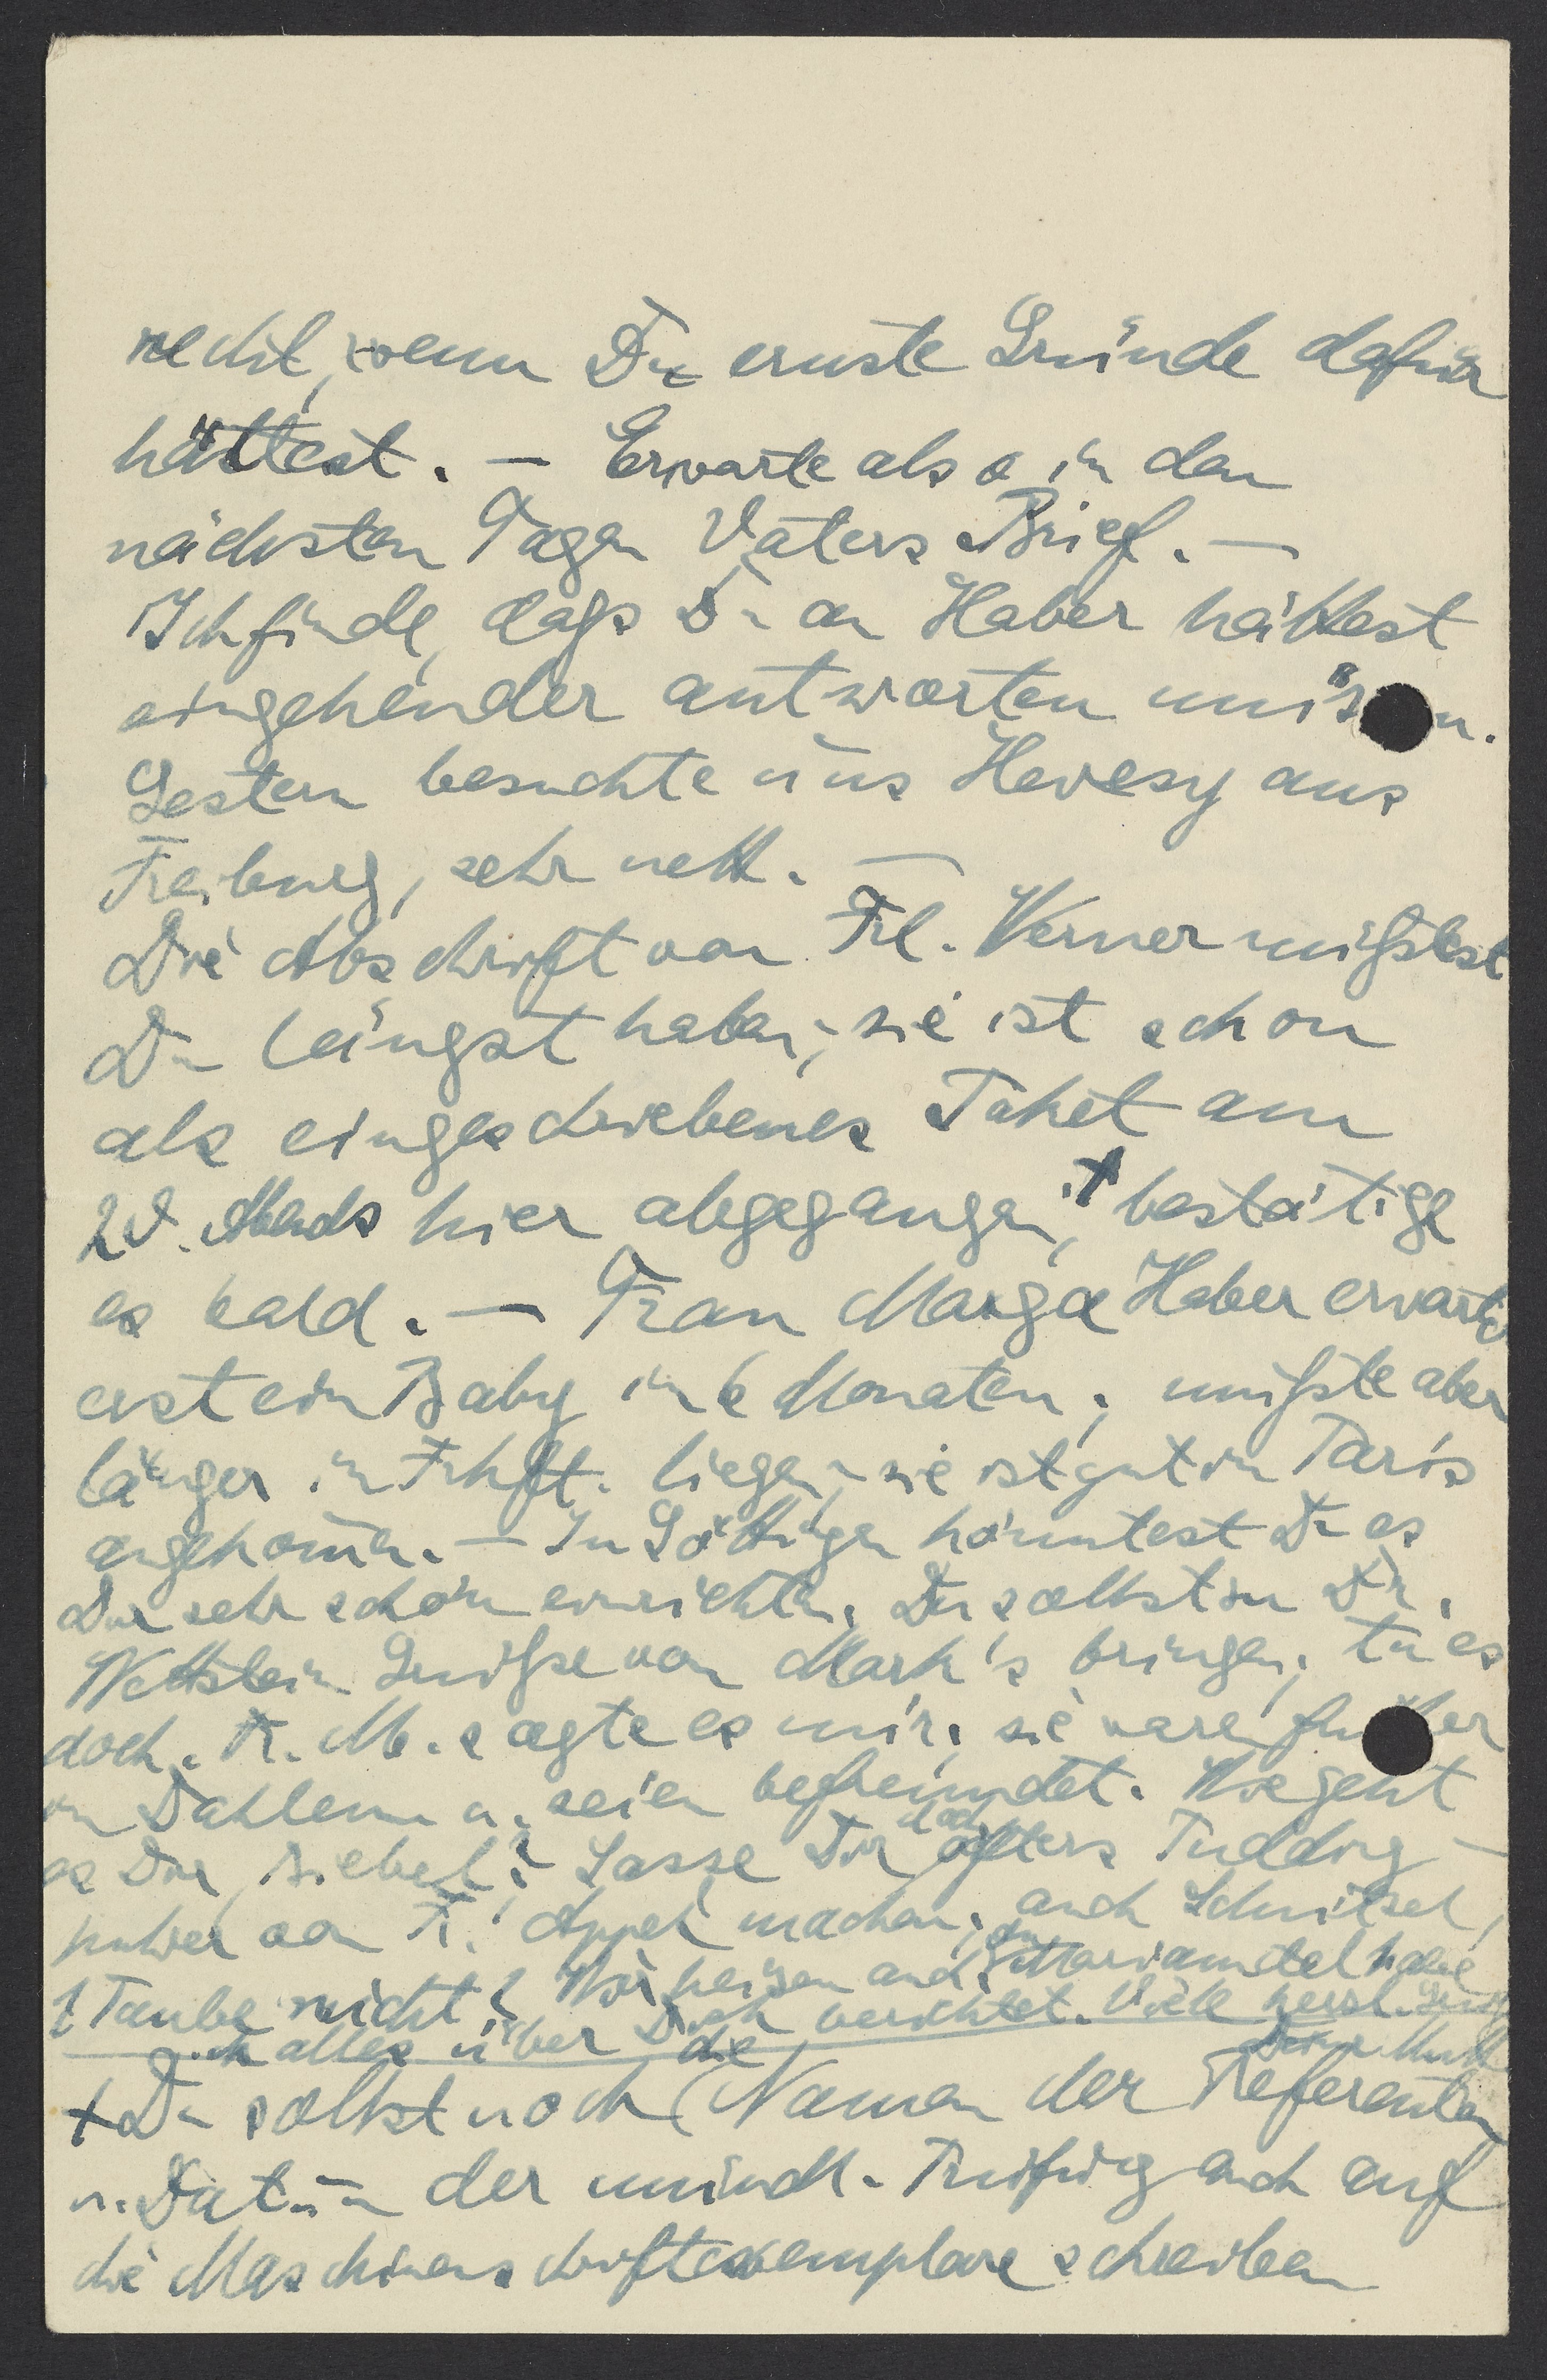 recht, wenn Du ernste Gründe dafür
hättest. — Erwarte also in den
nächsten Tagen Vaters Brief. —
Ich finde, daß Du an Haber hättest
eingehender antworten müs n.
Gestern besuchte uns Hevesy aus
Freiburg, sehr nett. —
Die Abschrift von Frl. Werner müßtest
Du längst haben; sie ist schon
als eingeschriebenes Paket am
Abends hier abgegangen, + bestätige
es bald. — Frau Marga Haber erwartet
erst ein Baby in 6 Monaten; mußte aber
länger in Frkft. liegen, sie ist gut in Paris
angekom̄en. — In Göttingen könntest Du es
Dir sehr schön einrichten. Du solltest in Dr.
Wettstein Grüße von Mark's bringen; tu es
doch. Fr. M. sagte es mir, sie waren früher
in Dahlem u. seien befreundet. Wie geht
es Dir, Siebel? Lasse Dir doch öfters Pudding-
pulver von Fr. Appel machen, auch Schnitzel,
1 Taube nicht? Wir heizen auch. habe
ich alles über Dich berichtet. Viele herzl. Grüße
Deine Mutti
+ Du sollst noch die Namen der Referenten
u. Datum der mündl. Prüfung auch auf
die Maschinenschriftexemplare schreiben